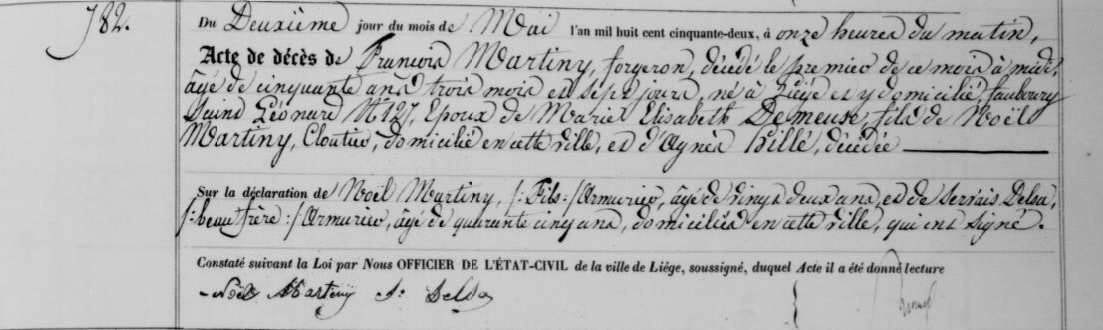 782.
Du Deuxième jour du mois de Mai l'an mil huit cent cinquante-deux, à onze heures du matin,
Acte de décès de François Martiny, forgeron, décédé le premier de ce mois à midi,
âgé de cinquante ans trois mois et sept jours, né à Liége et y domicilié, faubourg
Saint Léonard N° 127, Epoux de Marie Elisabeth Demeuse, fils de Noël
Martiny, Cloutier, domicilié en cette ville, et d'Agnès Hillé, décédée
Sur la déclaration de Noël Martiny, /: Fils :/ Armurier, âgé de vingt deux ans, et de Servais Delsa,
/: beau frère :/ Armurier, âgé de quarante cinq ans, domiciliés en cette ville, qui ont signé.
Constaté suivant la Loi par Nous OFFICIER DE L'ÉTAT-CIVIL de la ville de Liége, soussigné, duquel Acte il a été donné lecture
Noël Martiny S: Delsa